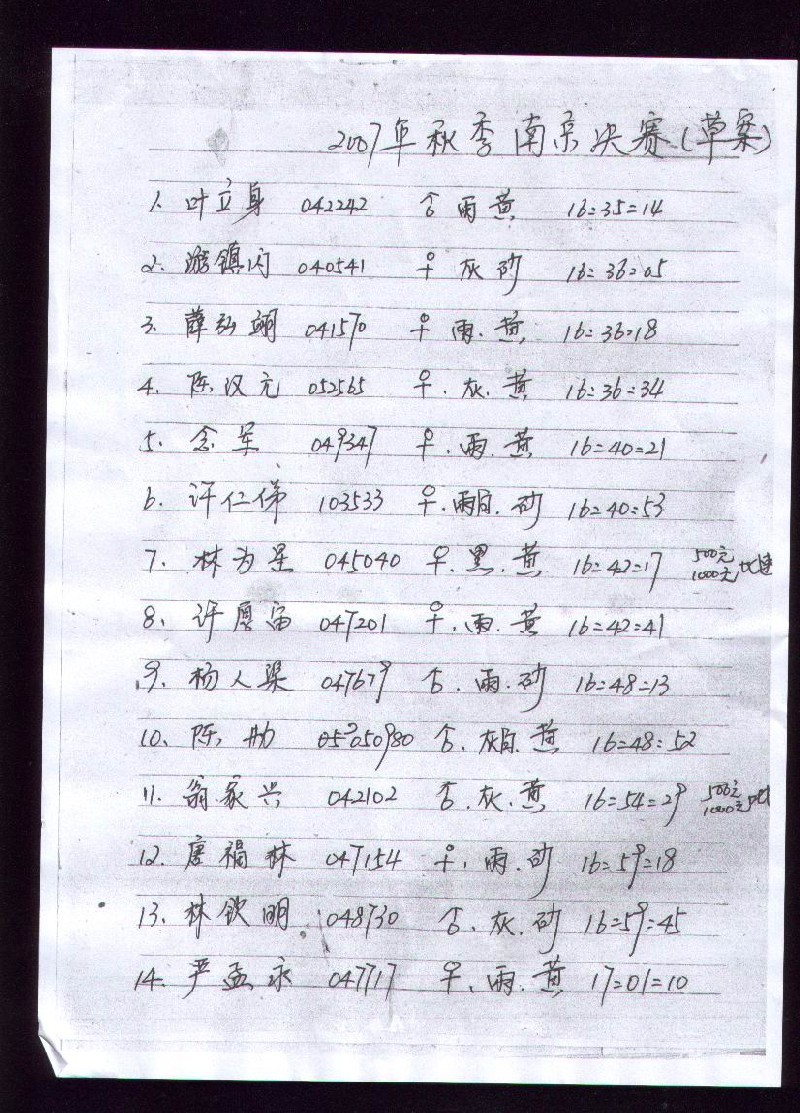 2007年秋季南京决赛(草案)
1. 叶立身 042242 ♂ 雨黄 16=35=14
2. 游镇闪 040541 ♀ 灰砂 16=36=05
3. 薛弘翊 041570 ♀ 雨.黄 16=36=18
4. 陈汉元 052565 ♀.灰.黄 16=36=34
5. 念军 049347 ♀.雨.黄 16=40=21
6. 许仁俤 103533 ♀.雨白.砂 16=40=53
7. 林为星 045040 ♀.黑.黄 16=42=17 500元
1000元
8. 许 047201 ♀.雨.黄 16=42=41
9. 杨人渠 047679 ♂.雨.砂 16=48=13
10. 陈 ♂.灰白.黄 16=48=52
11. 翁家兴 042102 ♂.灰.黄 16=54=29 500元
1000元
12. 唐福林 047154 ♀.雨.砂 16=59=18
13. 林钦明 048730 ♂.灰.砂 16=59=45
14. 严孟永 047717 ♀.雨.黄 17=01=10